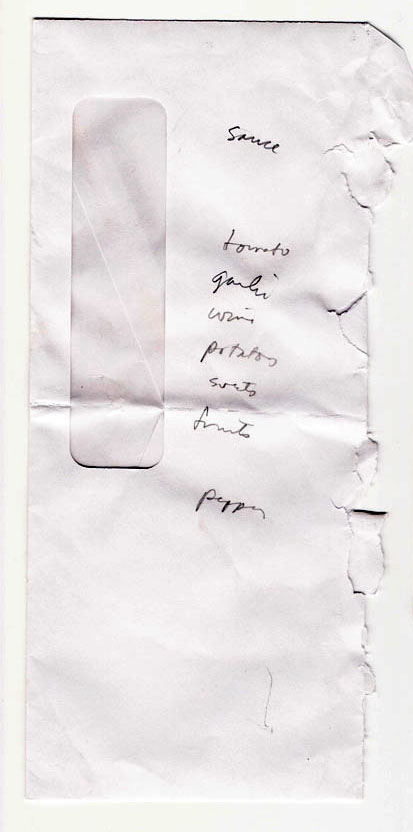 sauce
tomato
garlic
wine
potatoes
sweets
fruits
pepper